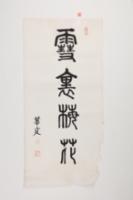 雪裏梅花